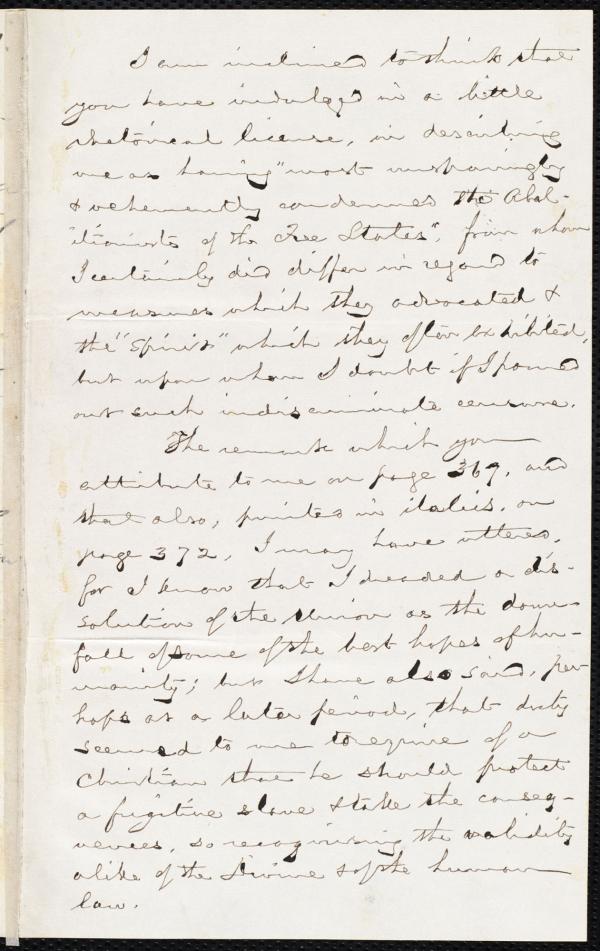 I am inclined to think that
you have indulged in a little
rhetorical license, in describing
me as having "most unsparingly
& vehemently condemned the Abol-
itionists of the Free States", from whom
I certainly did differ in regard to
measures which they advocated &
the "spirit" which they often exhibited,
but upon whom I doubt if I poured
out such indiscriminate censure.
The remark which you
attribute to me on page 367, and
that also, printed in italics, on
page 372, I may have uttered,
for I know that I dreaded a dis-
solution of the Union as the down-
fall of some of the best hopes of hu-
manity; but I have also said, per-
haps at a later period, that duty
seemed to me to require of a
Christian that he should protect
a fugitive slave & take the conseq-
uences, so recognising the validity
alike of the Divine & of the human
law.